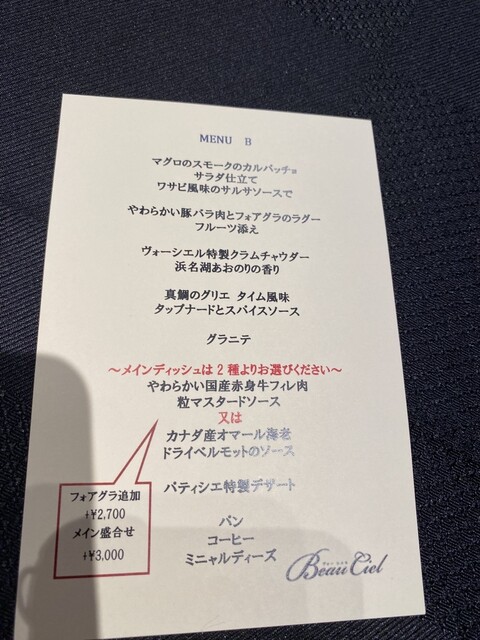 MENU B
マグロのスモークのカルパッチョ
サラダ仕立て
ワサビ風味のサルサソースで
やわらかい豚バラ肉とフォアグラのラグー
フルーツ添え
ヴォーシエル特製クラムチャウダー
浜名湖あおのりの香り
真鯛のグリエ タイム風味
タップナードとスパイスソース
グラニテ
～メインディッシュは2種よりお選びください～
やわらかい国産赤身牛フィレ肉
粒マスタードソース
又は
カナダ産オマール海老
ドライベルモットのソース
パティシエ特製デザート
パン
コーヒー
ミニャルディーズ
フォアグラ追加
+¥2,700
メイン盛合せ
+¥3,000
Beau Ciel